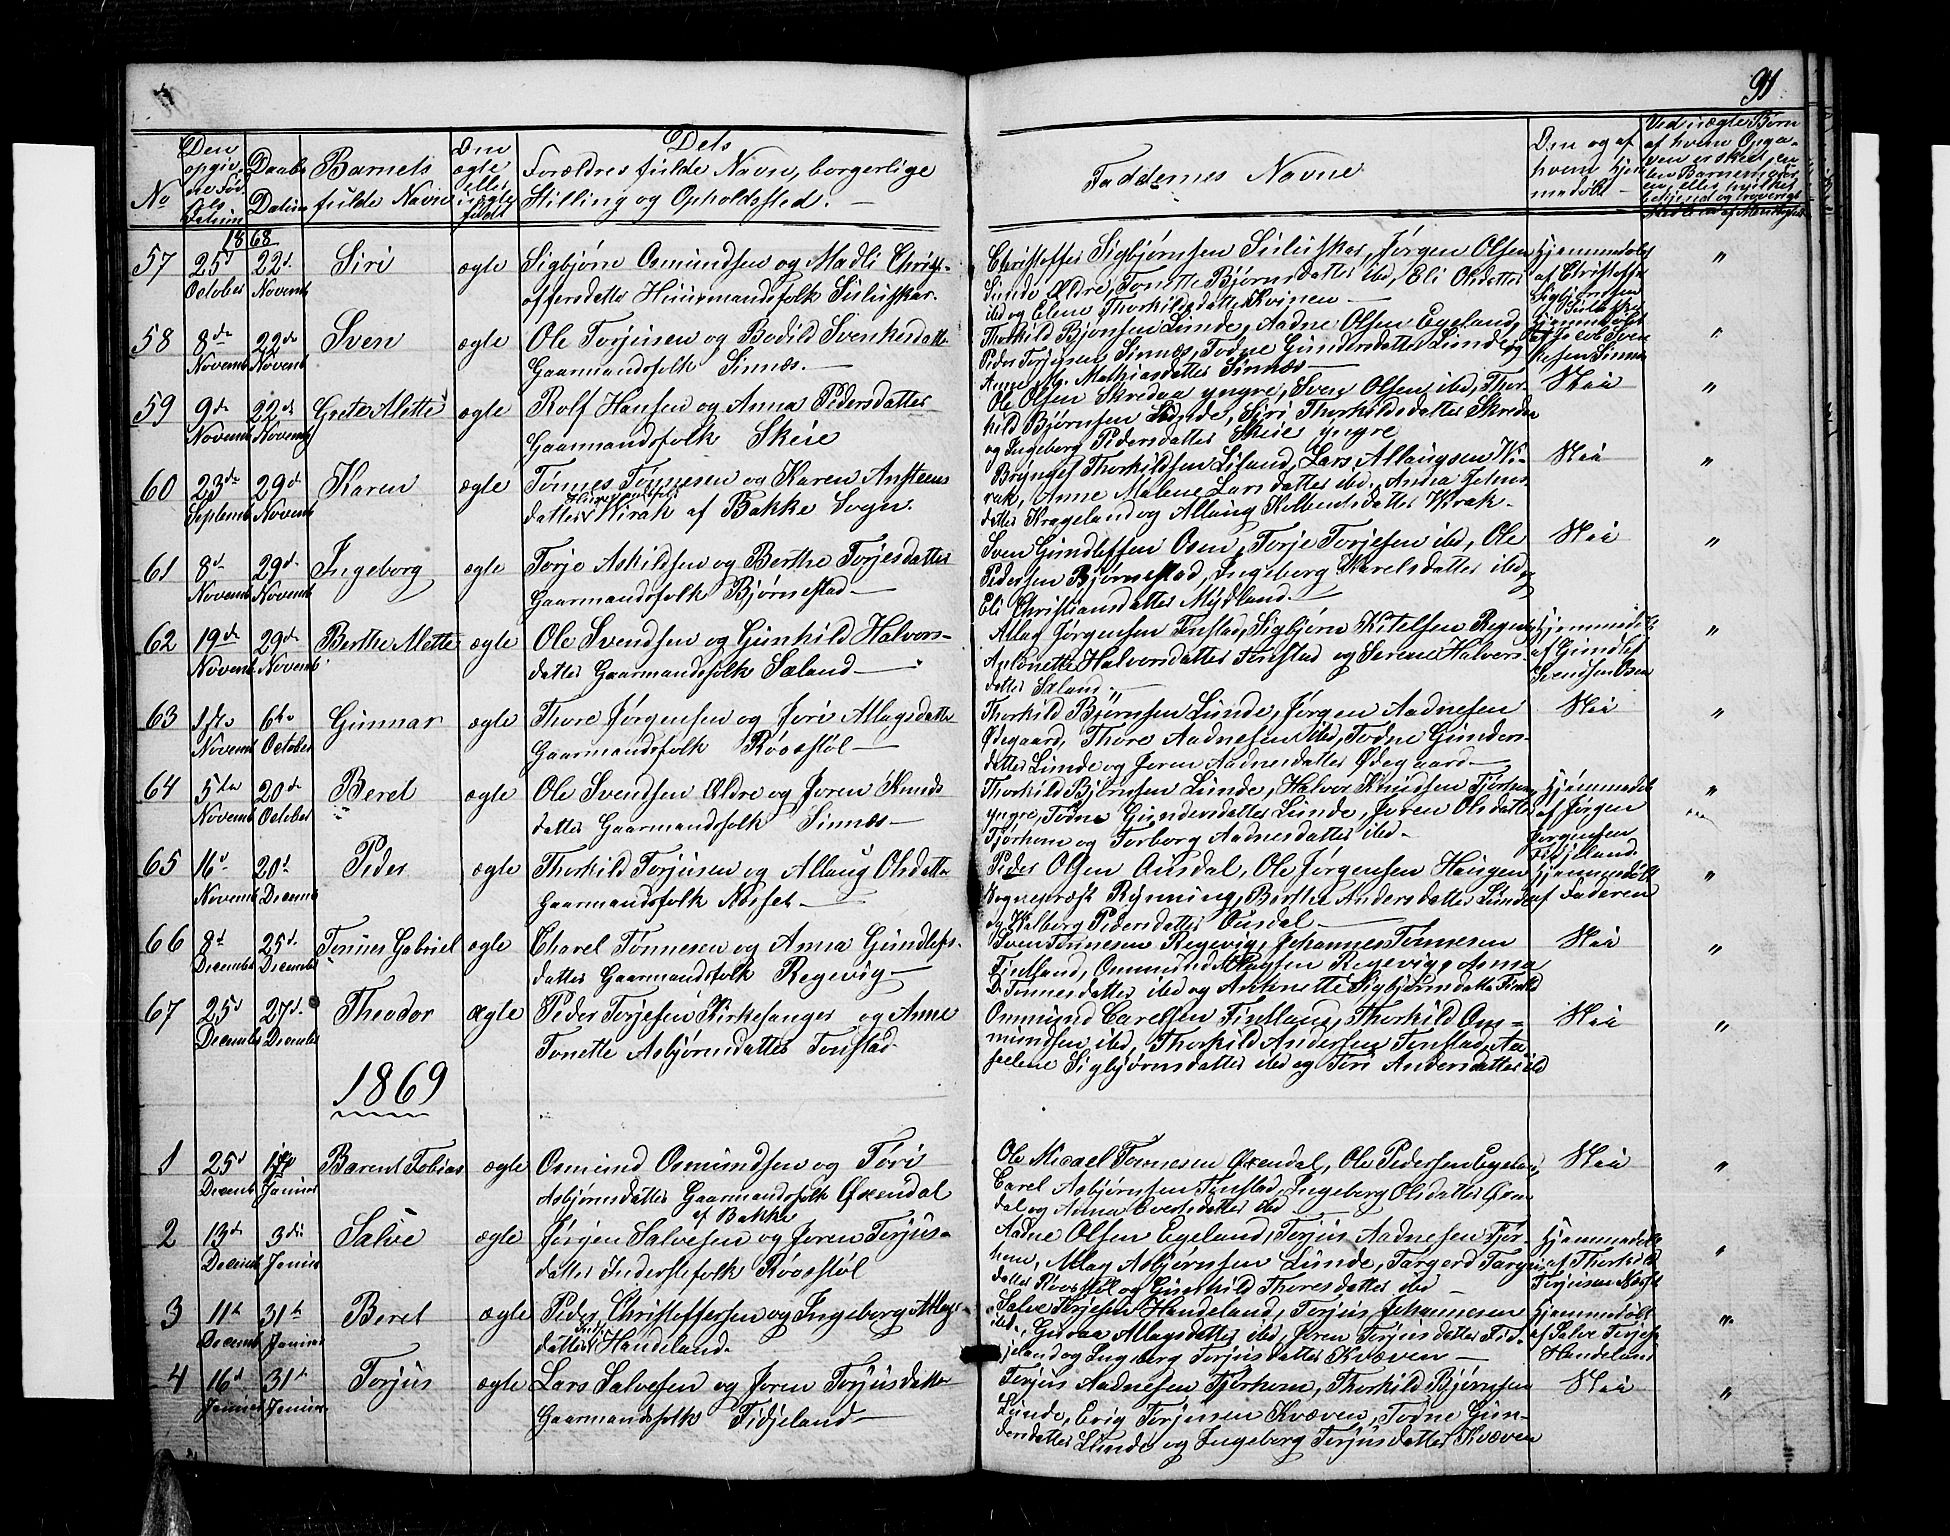 91
No
Den opgivne Fødsels Datum
Daabs Datum
Barnets fulde Navn
Om ægte eller uægte født
Dets Forældres fulde Navn, borgerlige Stilling og Opholdssted. —
Faddernes Navne
Om og af hvem hjemmedøbt —
Ved uægte Børn af hvem Opgaven er skeet, en
1868
57 25d October 22d Novemb Siri ægte Sigbjørn Osmundsen og Madli Christ-
offersdatter Huusmandsfolk Sinluskar.
Christoffer Sigbjørnsen Sinluskar, Jørgen Olsen
Lunde Ældre, Tonette Bjørnsdatter ibd, Eli Olsdatter
ibd og Elene Thorkildsdatter Kvinen —
Hjemmedøbt af Christoffer Sigbjørnsen "
58 8de Novemb 22de Novemb Sven ægte Ole Torjusen og Bodild Svenkesdatte
Gaarmandsfolk Sinnæs. —
Thorkild Bjørnsen Lunde, Aadne Olsen Egeland,
Peder Torjusen Sinnæs, Todne Gundersdatter Lunde og
Anne M. Mathiasdatter Sinnæs —
Hjemmedøbt "
59 9de Novemb 22de Novemb Grete Mette ægte Rolf Hansen og Anna Pedersdatter
Gaarmandsfolk Skeie
Ole Olsen Skredaa yngre, Sven Olsen ibd, Thor-
kild Bjørnsen Lunde, Siri Thorkildsdatter Skreda
og Ingeborg Pedersdatter Skeie yngre
Nei "
60 23de Septemb 29de Novemb Karen ægte Tønnes Tønnesen og Karen Anstens
datter Huusmandsfolk Virak af Bakke Sogn.
Brynnef Thorkildsen Liland, Lars Allaugsen Vi-
rak, Anne Malene Larsdatter ibd, Anna Jelens
datter Krageland og Allaug Kolbentsdatter Virak.
Nei "
61 8d Novemb 29de Novemb Ingeborg ægte Torje Askildsen og Berthe Torjesdatter
Gaarmandsfolk Bjørnestad —
Sven Gundleffen Osen, Torje Torjesen ibd, Ole
Pedersen Bjørnestad, Ingeborg Karelsdatter ibd og
Eli Christiansdatter Mydland. —
Nei "
62 19de Novemb 29de Novemb Berthe Mette ægte Ole Svendsen og Gunhild Halvors-
datter Gaarmandsfolk Sæland —
Allag Jørgensen Tonstad, Sigbjørn Ketelsen Regevig
Antonette Halvorsdatter Tonstad og Serene Halvors-
datter Sæland —
Hjemmedøbt af Gundlef Svendsen Osen "
63 Novemb 6te October Gunnar ægte Thore Jørgensen og Jori Allagsdatte
Gaarmandsfolk Røosstøl —
Thorkild Bjørnsen Lunde, Jørgen Aadnesen
Ødegaard, Thore Aadnesen ibd, Todne Gunders-
datter Lunde og Joren Aadnesdatter Ødegaard —
Nei "
64 5te Novemb 20de October Beret ægte Ole Svendsen Ældre og Joren Knuds
datter Gaarmandsfolk Sinnæs —
Thorkild Bjørnsen Lunde, Halvor Knudsen Tjørhom
yngre, Todne Gundersdatter Lunde, Joren Olsdatter
Tjørhom og Torborg Aadnesdatter ibd. —
Hjemmedøbt af Jørgen Jørgensen Fidjeland "
65 16d Novemb 20d Decemb Peder ægte Thorkild Torjusen og Allaug Olsdatte
Gaarmandsfolk Næsset —
Peder Olsen Ousdal, Ole Jørgensen Haugen
Sognepræst Rynning, Berthe Andersdatter Lunde
og Valborg Pedersdatter Ousdal —
Hjemmedøbt af Faderen "
66 8d Decemb 25d Decemb Tønnes Gabriel ægte Charel Tønnesen og Anna Gundlefs-
datter Gaarmandsfolk Regevig —
Sven Tønnesen Regevig, Johannes Tønnesen
Fintland, Ommund Allagsen Regevig, Asma
D. Tønnesdatter ibd og Antonette Sigbjørnsdatte Fintld
Nei "
67 25d Decemb 27d Decemb Theodor ægte Peder Torjesen Kirkesanger og Anne
Tonette Asbjørnsdatter Tonstad
Ommund Carelsen Fintland, Thorkild Om-
mundsen ibd, Thorkild Andersen Tonstad, An-
selene Sigbjørnsdatter ibd og Tori Andersdatter ibd
Nei "
1869
1 25d Decemb Januar Barent Tobias ægte Osmund Osmundsen og Tori
Asbjørnsdatter Gaarmandsfolk Øxendal
af Bakke
Ole Micael Tønnesen Øxendal, Ole Pedersen Egeland,
Carel Asbjørnsen Tonstad, Ingeborg Olsdatter Øxen-
dal og Anna Evertsdatter ibd —
Nei "
2 13de Decemb 3die Januar Salve ægte Jørgen Salvesen og Joren Torjus-
datter Inderstefolk Røosstøl
Aadne Olsen Egeland, Torjus Aadnesen Tjør-
hom, Allag Asbjørnsen Lunde, Targerd Targes-
datter Røosstøl og Gunhild Thoresdatter ibd —
Hjemmedøbt af Thorkild Torjusen Næsset "
3 11te Decemb 31te Januar Beret ægte Peder Christoffersen og Ingeborg Allags-
datter Handeland.
Salve Torjesen Handeland, Torjus Johannesen
ibd, Guroa Allagsdatter ibd, Joren Torjusdatter Fid-
jeland og Ingeborg Torjusdatter Kvæven —
Hjemmedøbt af Salve Torjes. Handeland "
4 16d Januar 31te Januar Torjus ægte Lars Salvesen og Joren Torjusdatte
Gaarmandsfolk Fidjeland —
Torjus Aadnesen Tjørhom, Thorkild Bjørnsen
Lunde, Erig Torjusen Kvæven, Todne Gun-
dersdatter Lunde og Ingeborg Torjusdatter Kvæven
Nei "